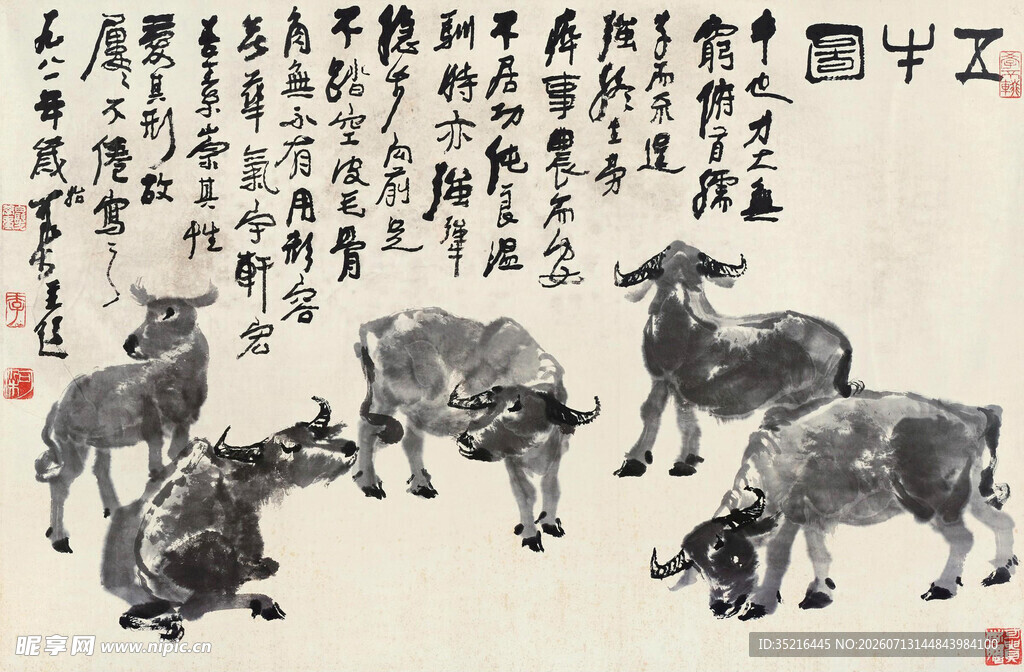 五牛圖
牛也力大無
窮俯首孺
子而不逞
強終生勞
瘁事農而安
不居功純良温
馴時亦強犟
穩步向前足
不踏空皮毛骨
角無不有用形容
無華氣宇軒宏
吾素崇其性
愛其形故
屢々不倦寫之
一九八一年歲始可染並題
昵享网 www.nipic.cn
ID:35216445 NO:20260713144843984100